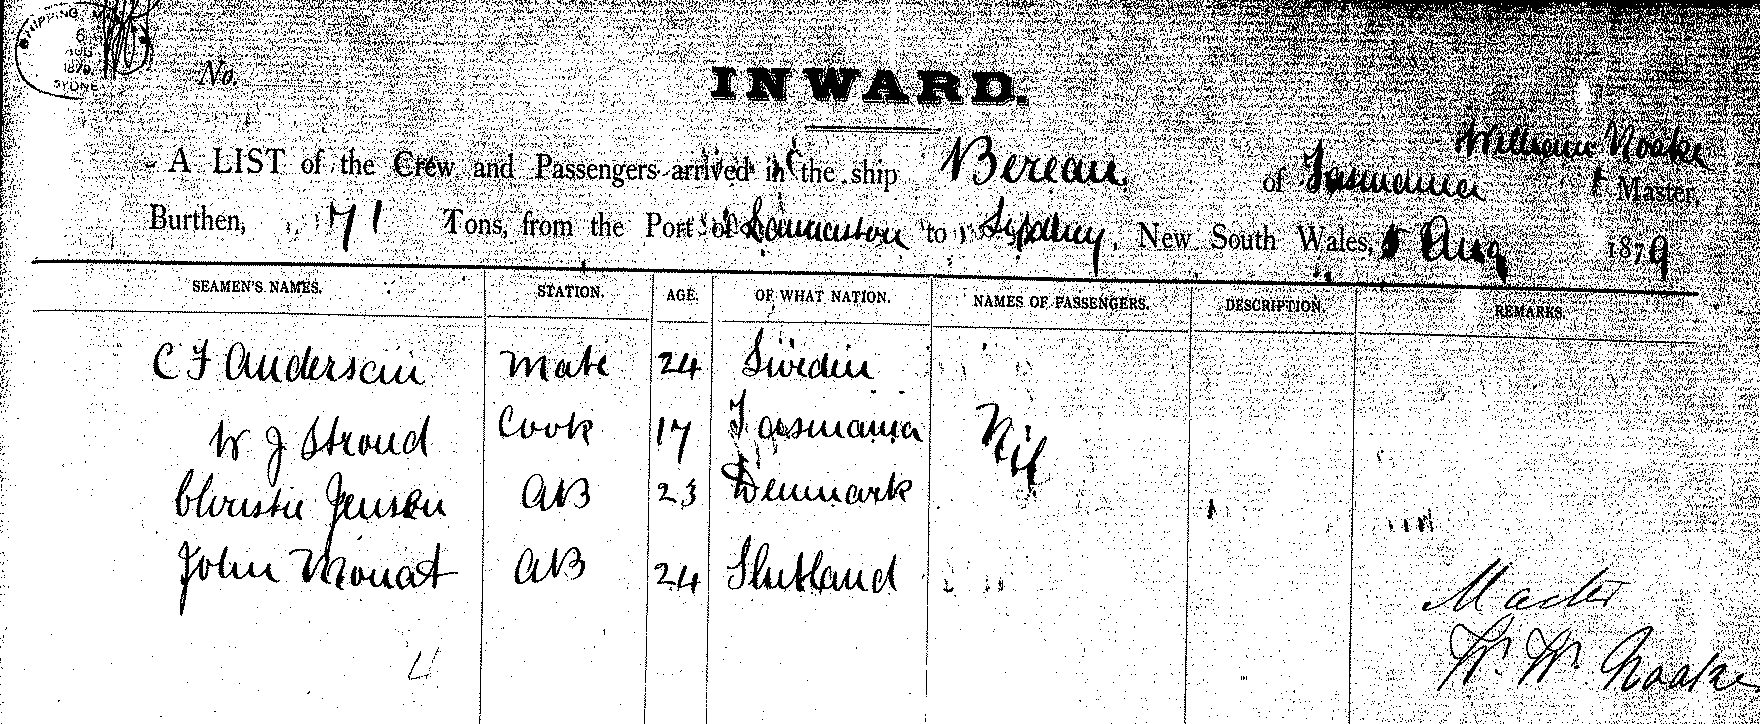 SHIPPING
6
AUG
1879
SYDNEY
No.
INWARD.
William Noake
A LIST of the Crew and Passengers arrived in the ship Bereau, of Tasmania Master,
Burthen, 71 Tons, from the Port of Launceston to Sydney, New South Wales, 5 Aug 1879
SEAMEN'S NAMES. STATION. AGE. OF WHAT NATION. NAMES OF PASSENGERS. DESCRIPTION. REMARKS.
C F Anderson Mate 24 Sweden
W J Stroud Cook 17 Tasmania Nil
Christie Jensen AB 23 Denmark
John Mouat AB 24 Shetland
4
Master
W. W. Noake